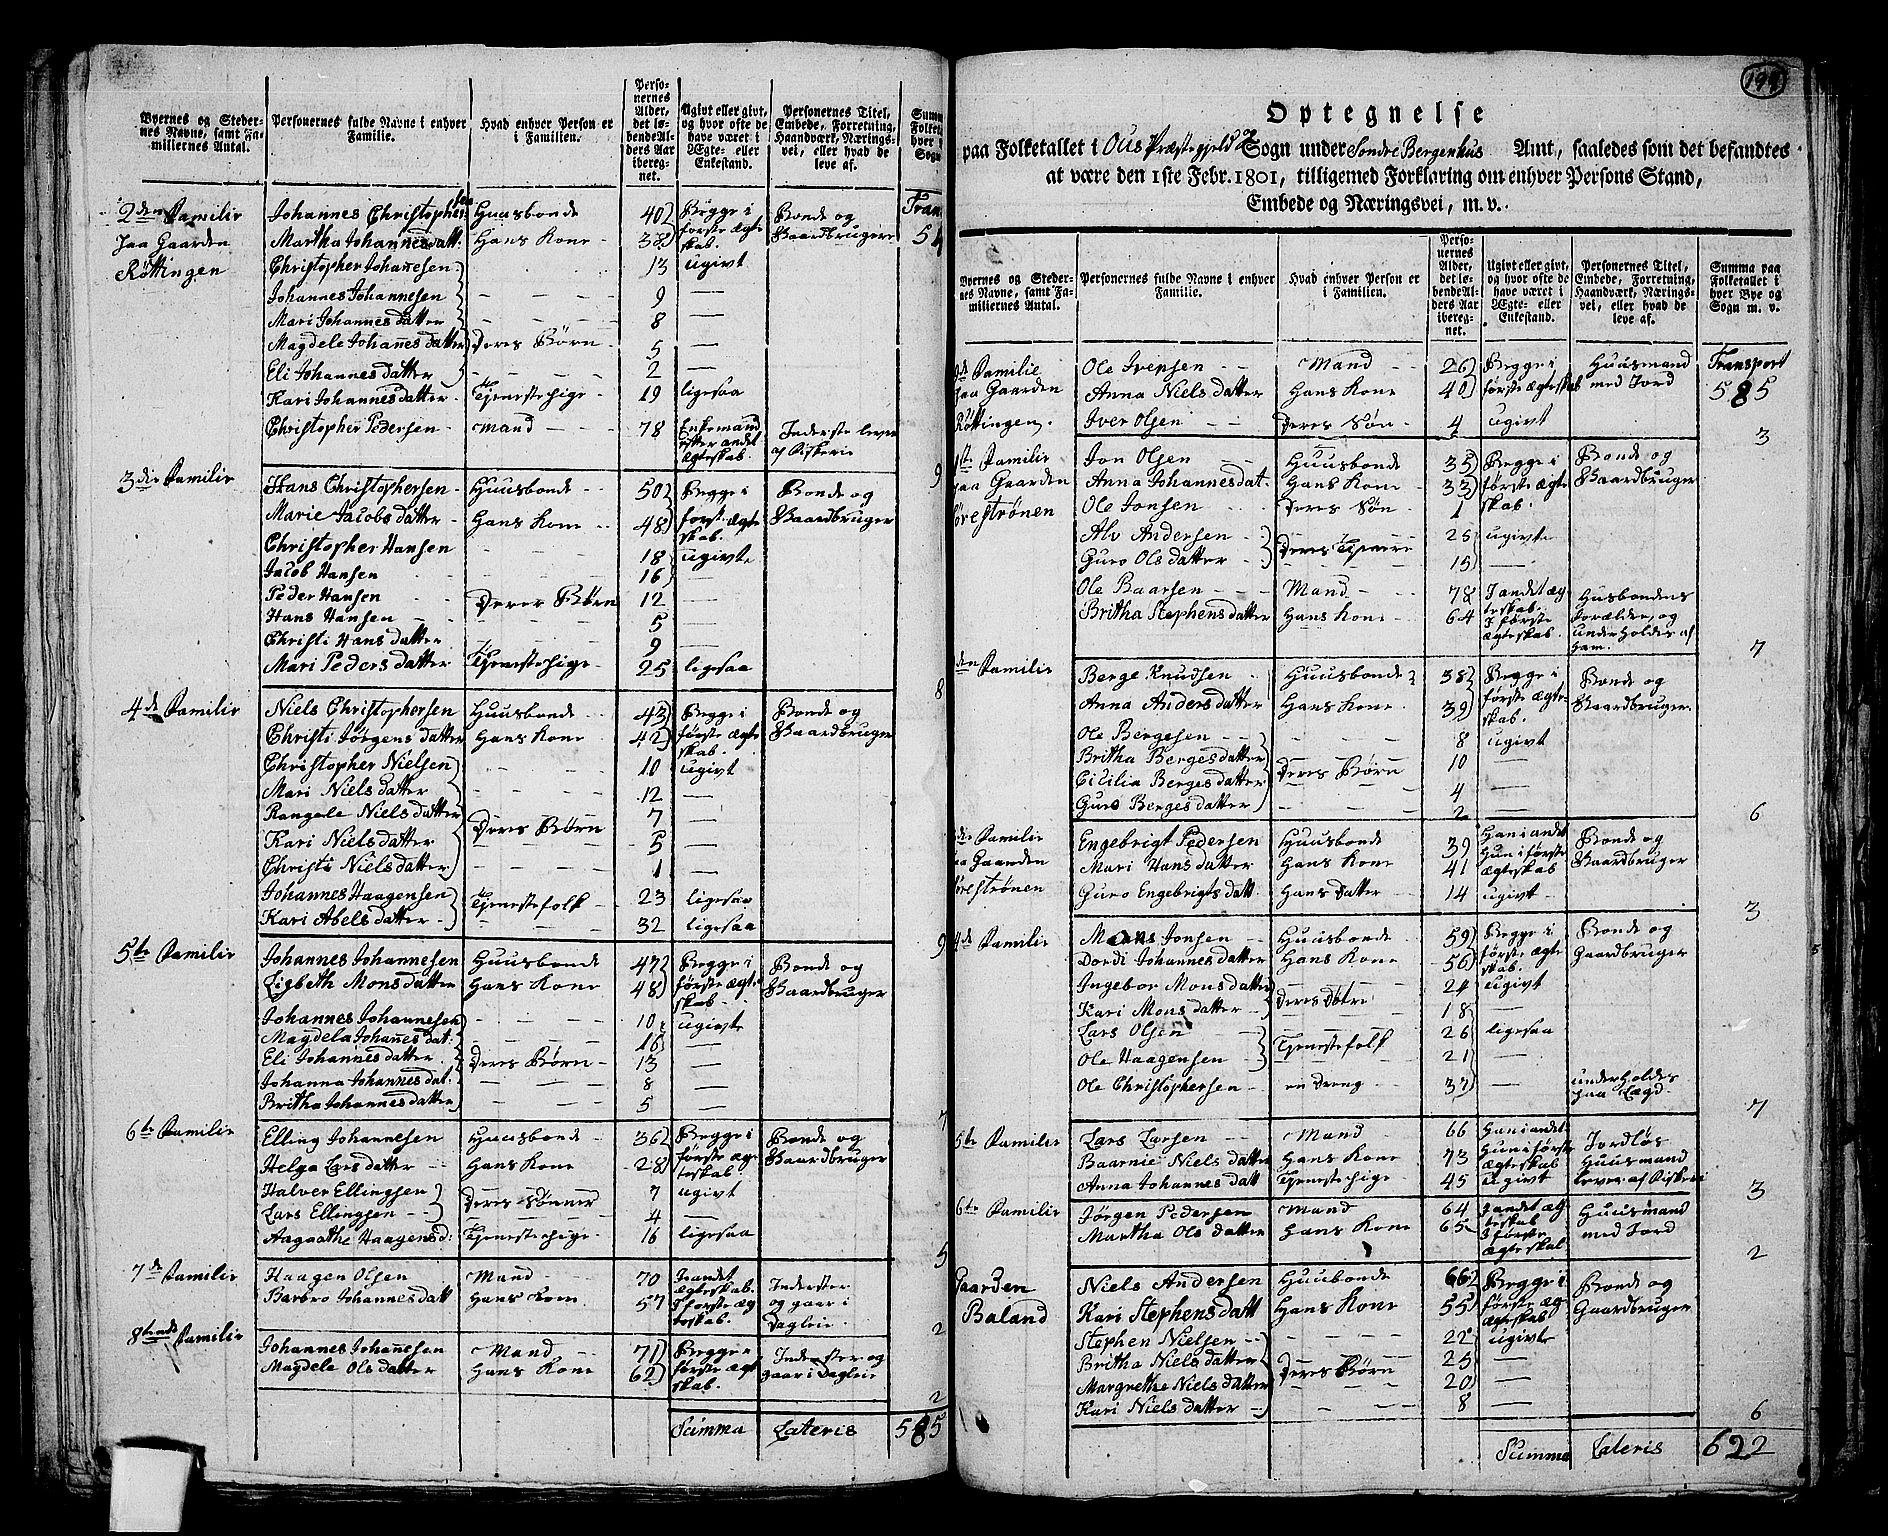 Byernes og Steder-
nes Navne, samt Fa-
miliernes Antal.
Personernes fulde Navne i enhver
Familie.
Hvad enhver Person er
i Familien.
Perso-
nernes
Alder,
det lø-
bende Al-
ders Aar
iberegn-
net.
Ugivt eller givt,
og hvor ofte de
have været i
Ægte- eller
Enkestand.
Personernes Titel,
Embede, Forretning,
Haandværk, Nærings-
vei, eller hvad de
leve af.
2den Familie Johannes Christophersen Huusbonde 40 Begge i Bonde og
paa Gaarden Martha Johannesdatt: Hans Kone 38 første Ægte Gaardbruger
skab
Röttingen Christopher Johanesen 13 ugivt
Johannes Johannesen 9 —
Mari Johannes datter 8 —
Magdele Johanes datter Deres Børn 5 —
Eli Johannes datter 2 —
Kari Johannes datter Tjenestepige 19 ligesaa
Christopher Pedersen Mand 78 Enkemand Inderste lever
efter andet af Fiskerie
Ægteskab.
9
3die Familie Hans Christophersen Huusbonde 50 Begge i Bonde og
Marie Jacobs datter Hans Kone 48 først Ægte Gaardbruger
skab.
Christopher Hansen 18 ugivte
Jacob Hansen 16 —
Peder Hansen Deres Børn 12 —
Hans Hansen 5 —
Christi Hans datter 9 —
Mari Peders datter Tjenestepige 25 ligesaa
8
4de Familie Niels Christophersen Huusbonde 43 Begge i Bonde og
Christi Jørgens datter Hans Kone 42 første Ægte Gaardbruger
skab.
Christopher Nielsen 10 ugivt
Mari Niels datter 12 —
Rangale Niels datter 7 —
Kari Niels datter Deres Børn 5 —
Christi Niels datter 1 —
Johannes Haagensen Tjenestefolk 23 ligesaa
Kari Abels datter 32 ligesaa
9
5te Familie Johannes Johannesen Huusbonde 47 Begge i Bonde og
Lisbeth Mons datter Hans Kone 48 første Ægte Gaardbruger
skab
Johannes Johannesen 10 ugivte
Magdela Johanes dat: 16 —
Eli Johannes datter Deres Børn 13 —
Johanna Johannes dat. 8 —
Britha Johannes datter 5 —
7
6te Familie Elling Johannesen Huusbonde 36 Begge i Bonde og
Helga Lars datter Hans Kone 28 første Æg Gaardbruger
teskab
Halver Ellingsen Deres Sønner 7 ugivt
Lars Ellingsen 4 —
Aagaathe Haagensd: Tjenestepige 16 ligesaa
5
7de Familie Haagen Olsen Mand 70 I andet Inderster
Ægteskab.
Barbro Johannes datt Hans Kone 57 I første Æg og gaar i
teskab. Dagleie
2
8tende Familie Johannes Johanesen Mand 71 Begge i Inderster og
Magdele Ols datter Hans Kone 62 første Ægt gaar i Dagleie
skab.
2
Summa Lateris 585
Optegnelse
paa Folketallet i Ous Præstegjeld Sogn under Søndre Bergenhus Amt, saaledes som det befandtes
at være den 1ste Febr. 1801, tilligemed Forklaring om enhver Persons Stand,
Embede og Næringsvei, m. v.
Byernes og Steder-
nes Navne, samt Fa-
miliernes Antal.
Personernes fulde Navne i enhver
Familie.
Hvad enhver Person er
i Familien.
Perso-
nernes
Alder,
det lø-
bende Al-
ders Aar
iberegn-
net.
Ugivt eller givt,
og hvor ofte de
have været i
Ægte- eller
Enkestand.
Personernes Titel,
Embede, Forretning,
Haandværk, Nærings-
vei, eller hvad de
leve af.
Summa paa
Folketallet i
hver Bye og
Sogn m. v.
Familie Ole Iversen Mand 26 Begge i Huusmand Transport
paa Gaarden Anna Niels datter Hans Kone 40 første Ægteskab med Jord 585
Röttingen. Iver Olsen Deres Søn 4 ugivt
3
1te Familie Jon Olsen Huusbonde 35 Begge i Bonde og
paa Gaarden Anna Johannes dat. Hans Kone 33 første Ægte Gaardbruger
Øreströnen Ole Jonsen Deres Søn 1 skab.
Alv Andersen 25 ugivte
Guro Ols datter Deres 15 —
Ole Baarsen Mand 78 I andet Æg Husbondens
teskab.
Britha Stephens datter Hans Kone 64 I første Forælder, og
Ægteskab. underholdes af
ham.
7
den Familie Berge Knudsen Huusbonde 38 Begge i Bonde og
Anna Anders datter Hans Kone 39 første Ægte- Gaardbruger.
skab.
Ole Bergesen 8 ugivt
Britha Berges datter 10 —
Cicilia Berges datter Deres Børn 4 —
Guro Berges datter 2 —
6
die Familie Engebrigt Pedersen Huusbonde 39 Han i andet Bonde og
paa Gaarden Mari Hans datter Hans Kone 41 Hun i første Gaardbruger
Ægteskab
Øreströnen Guro Engebrigts datt Hans Datter 14 ugivt
3
4de Familie Moans Jonsen Huusbonde 59 Begge i Bonde og
Dordi Johannes datter Hans Kone 56 første Ægte Gaardbruger
skab.
Ingebor Mons datter Deres Døtre 24 ugivt
Kari Mons datter 18 —
Lars Olsen Tjenestefolk 26 ligesaa
Ole Haagensen 21 —
Ole Christophersen en Dreng 37 — underholdes
paa Lægd
7
5te Familie Lars Larsen Mand 66 Han i andet Jordløs
Baarnie Niels datter Hans Kone 73 Hun i første Huusmand
Ægteskab
Anna Johannes datt Tjenestepige 45 ugivt lever af Fiskeri
3
6te Familie Jørgen Pedersen Mand 64 I andet Æg Huusmand
teskab
Martha Ols datter Hans Kone 65 I første med Jord
Ægteskab
2
Gaarden Niels Andersen Huusbonde 66 Begge i Bonde og
Baland Kari Stephens datt Hans Kone 55 første Æg Gaardbruger
teskab
Stephen Nielsen 22 ugivte
Britha Niels datter Deres Børn 25 —
Margrethe Niels datter 20 —
Kari Niels datter 8 —
6
Summa Lateris 622